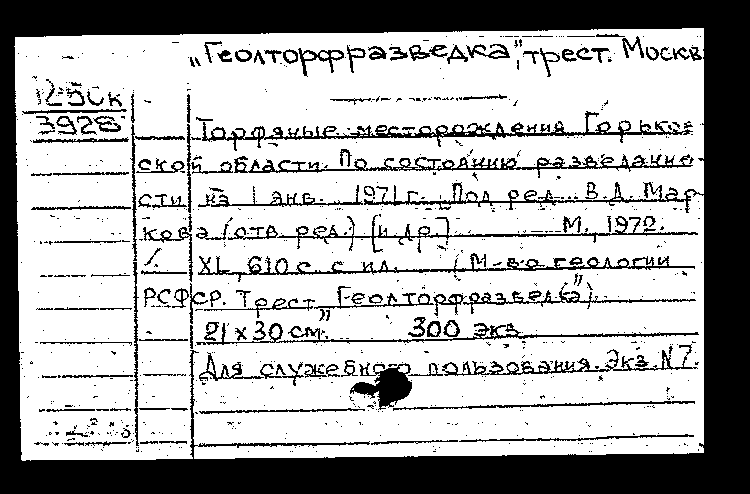 „Геолторфразведка“, трест. Москв
12-5ОК
3928
Торфяные месторождения Горьков-
ской области. По состоянию разведанно-
сти на 1 янв. 1971 г. Под ред. В.Д. Мар
кова (отв. ред.) [и др.] М., 1972.
XL, 610 с. с ил. (М-во геологии
РСФСР. Трест „Геолторфразведка“)
21 х 30 см. 300 экз.
Для служебного пользования. Экз. N7.